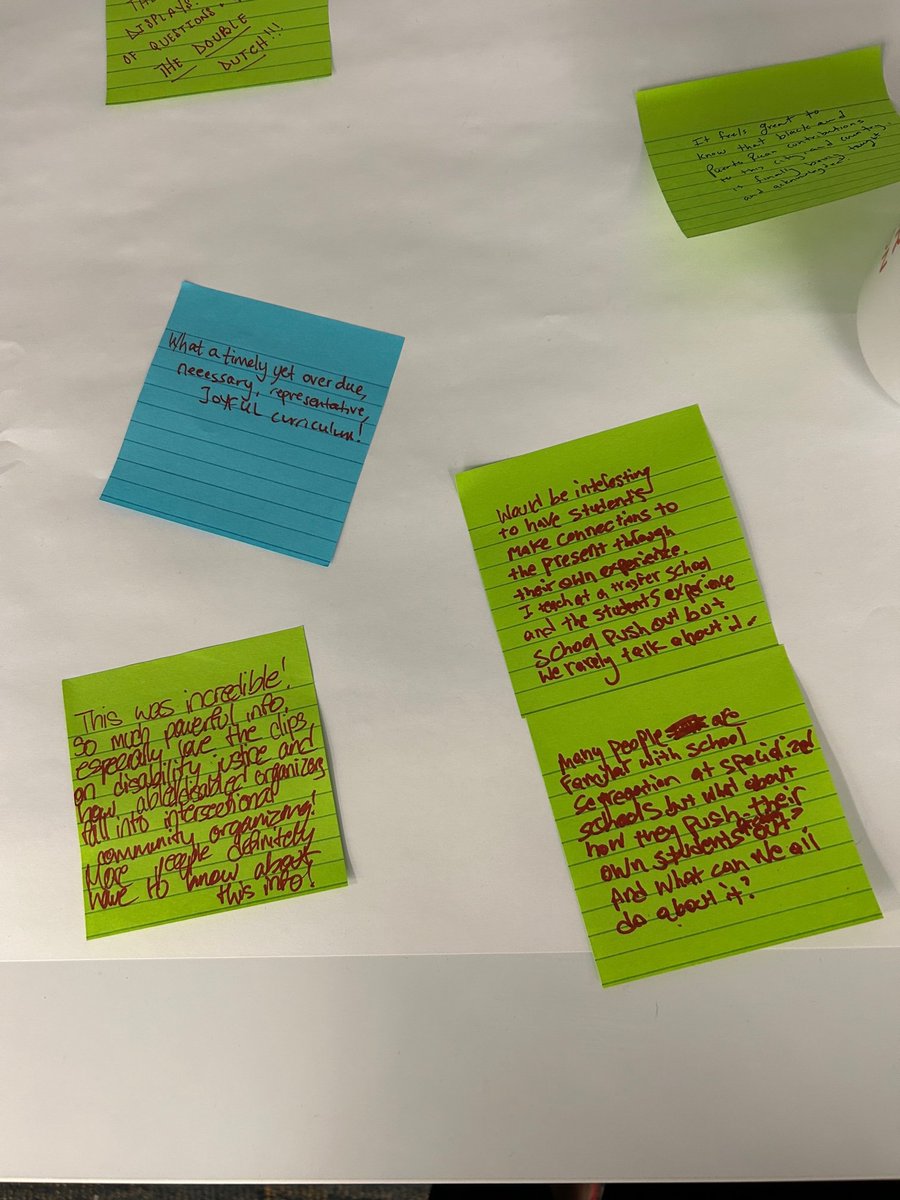 DISPLAYS.
OF QUESTIONS
THE DOUBLE
DUTCH!!!
It feels great to
know that black and
Puerto Rican contributions
to this city and country
is finally being taught
and acknowledged
What a timely yet over due,
necessary, representative,
JOYFUL curriculum!
Would be interesting
to have students
make connections to
the present through
their own experience.
I teach at a transfer school
and the students experience
school push out but
we rarely talk about it.
This was incredible!
So much powerful info,
especially love the clips
on disability justice and
how abled/disabled organizers
fall into intersectional
community organizing!
More people definitely
have to know about
this info!
Many people are
familiar with school
segregation at specialized
schools but what about
how they push their
own students out?
And what can we all
do about it?